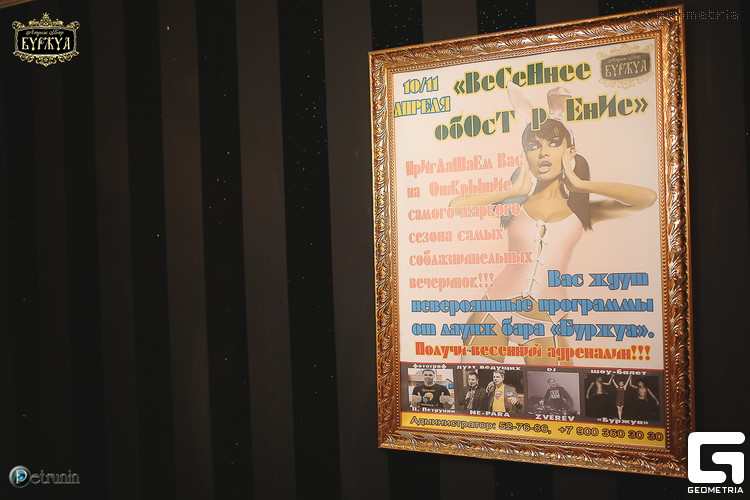 Лаунж Бар
БУРЖУА
geometria
БУРЖУА
10/11
АПРЕЛЯ
«ВеСеНнее
обОсТ р ЕнИе»
ПриГлаШаЕм Вас
на ОткРЫтие
самого жаркого
сезона самых
соблазнительных
вечеринок!!!
Вас ждут
невероятные программы
от лаунж бара «Буржуа».
Получи весенний адреналин!!!
фотограф дуэт ведущих DJ шоу-балет
П. Петрунин NE-PARA ZVEREV «Буржуа»
Администратор: 52-76-86, +7 900 360 30 30
Petrunin
GEOMETRIA